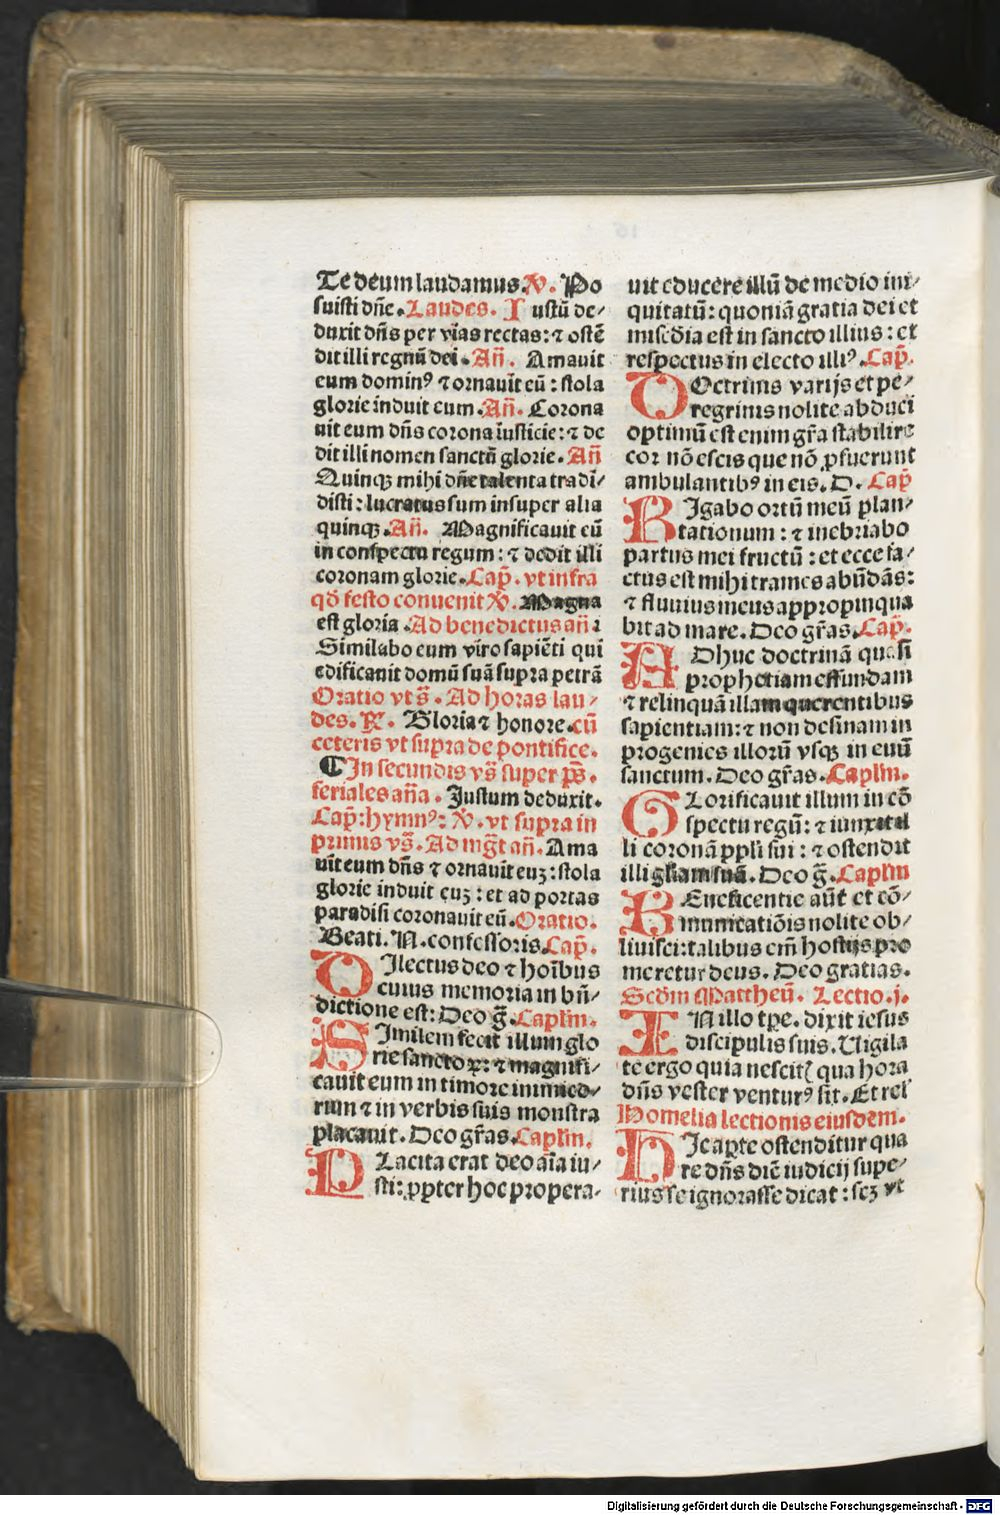 Te deum laudamus. V̷. Po
suisti dn̄e. Laudes. Iustū de-
duxit dn̄s per vīas rectas: ⁊ ostē
dit illi regnū dei. Añ. Amauit
eum dominꝰ ⁊ ornauīt eū: stola
glorie induit eum. Añ. Corona
uit eum dn̄s corona iusticie: ⁊ de
dit illi nomen sanctū glorie. Añ
Quinqꝫ mihi dn̄e talenta tradi-
disti: lucratus sum insuper alia
quinqꝫ. Añ. Magnificauit eū
in conspectu regum: ⁊ dedit illi
coronam glorie. Cap̄. vt infra
qd̄ festo conuenit V̷. Magna
est gloria. Ad benedictus añ
Similabo eum viro sapiēti qui
edificauit domū suā supra petrā
Oratio vt s̄. Ad horas lau-
des. R̷. Gloria ⁊ honore. cū
ceteris vt supra de pontifice.
¶ In secundis vs̄ super ps̄.
feriales aña. Justum deduxit.
Cap̄: hymnꝰ: V̷. vt supra in
primis vs̄. Ad mg̅t añ. Ama
uit eum dn̄s ⁊ ornauit euꝫ: stola
glorie induit euꝫ: et ad portas
paradisi coronauit eū. Oratio.
Beati. N. confessoris Cap̄.
Dilectus deo ⁊ hoībus
cuius memoria in bn̄-
dictione est: Deo g̅. Caplm̄.
Similem fecit illum glo
rie sanctoꝝ: ⁊ magnifi-
cauit eum in timore inimico-
rum ⁊ in verbis suis monstra
placauit. Deo gr̄as. Caplm̄.
Placita erat deo aīa iu-
sti: ꝓpter hoc propera-
uit educere illū de medio ini-
quitatū: quoniā gratia dei et
misc̄dia est in sancto illius: et
respectus in electo illiꝰ. Cap̄.
Doctrinis varijs et pe-
regrinis nolite abduci
optimū est enim gr̄a stabilire
cor nō escis que nō ꝓfuerunt
ambulantibꝰ in eis. D. Cap̄
Rigabo ortū meū plan-
tationum: ⁊ inebriabo
partus mei fructū: et ecce fa-
ctus est mihi trames abūdās:
⁊ fluuius meus appropinqua
bit ad mare. Deo gr̄as. Cap̄.
Adhuc doctrinā quasi
prophetiam effundam
⁊ relinquā illam querentibus
sapientiam: ⁊ non desinam in
progenies illorū vsqꝫ in euū
sanctum. Deo gr̄as. Caplm̄.
Glorificauit illum in cō
spectu regū: ⁊ iunxit il
li coronā ppl̄i sui: ⁊ ostendit
illi gl̄iam suā. Deo g̅. Caplm̄
Beneficentie aūt et cō-
municatiōis nolite ob-
liuisci: talibus em̄ hostijs pro
meretur deus. Deo gratias.
Scd̄m Mattheū. Lectio. j.
In illo tp̄e. dixit iesus
discipulis suis. Uigila
te ergo quia nescitꝭ qua hora
dn̄s vester venturꝰ sit. Et rel̄
Homelia lectionis eiusdem.
Hic aperte ostenditur qua
re dn̄s diē iudicij supe-
rius se ignorasse dicat: scꝫ vt
Digitalisierung gefördert durch die Deutsche Forschungsgemeinschaft - DFG